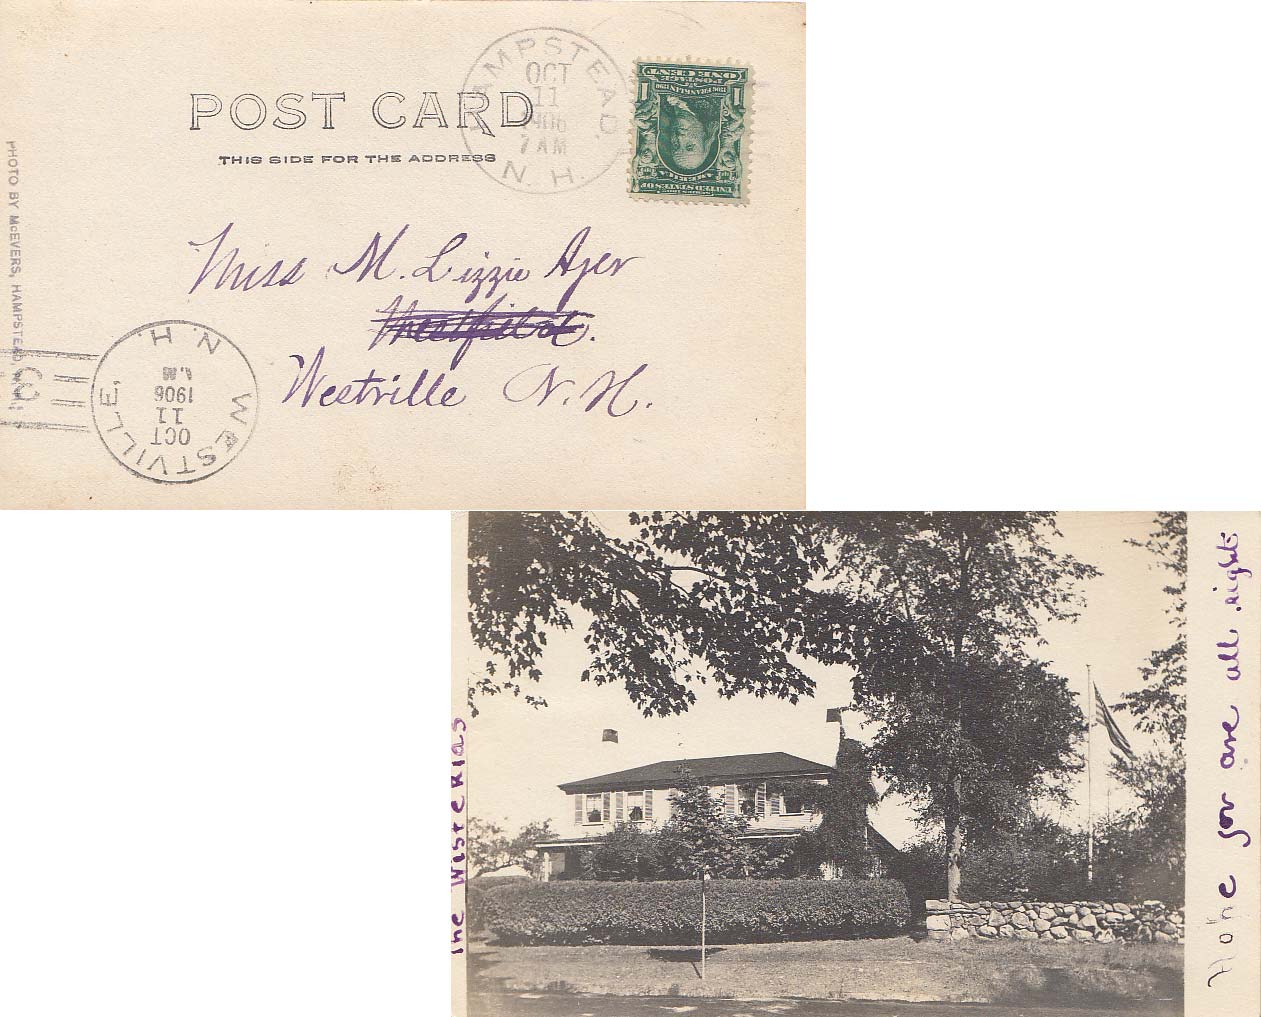 POST CARD
THIS SIDE FOR THE ADDRESS
HAMPSTEAD,
OCT
11
1906
7 AM
N. H.
1 ONE CENT 1
POSTAGE
1706 FRANKLIN 1790
UNITED STATES OF
AMERICA
PHOTO BY McEVERS, HAMPSTEAD, N.H.
Miss M. Lizzie Ayer
Westville N. H.
WESTVILLE,
N. H.
OCT
11
1906
A.M.
3
The Wisterias
Hope you are all right